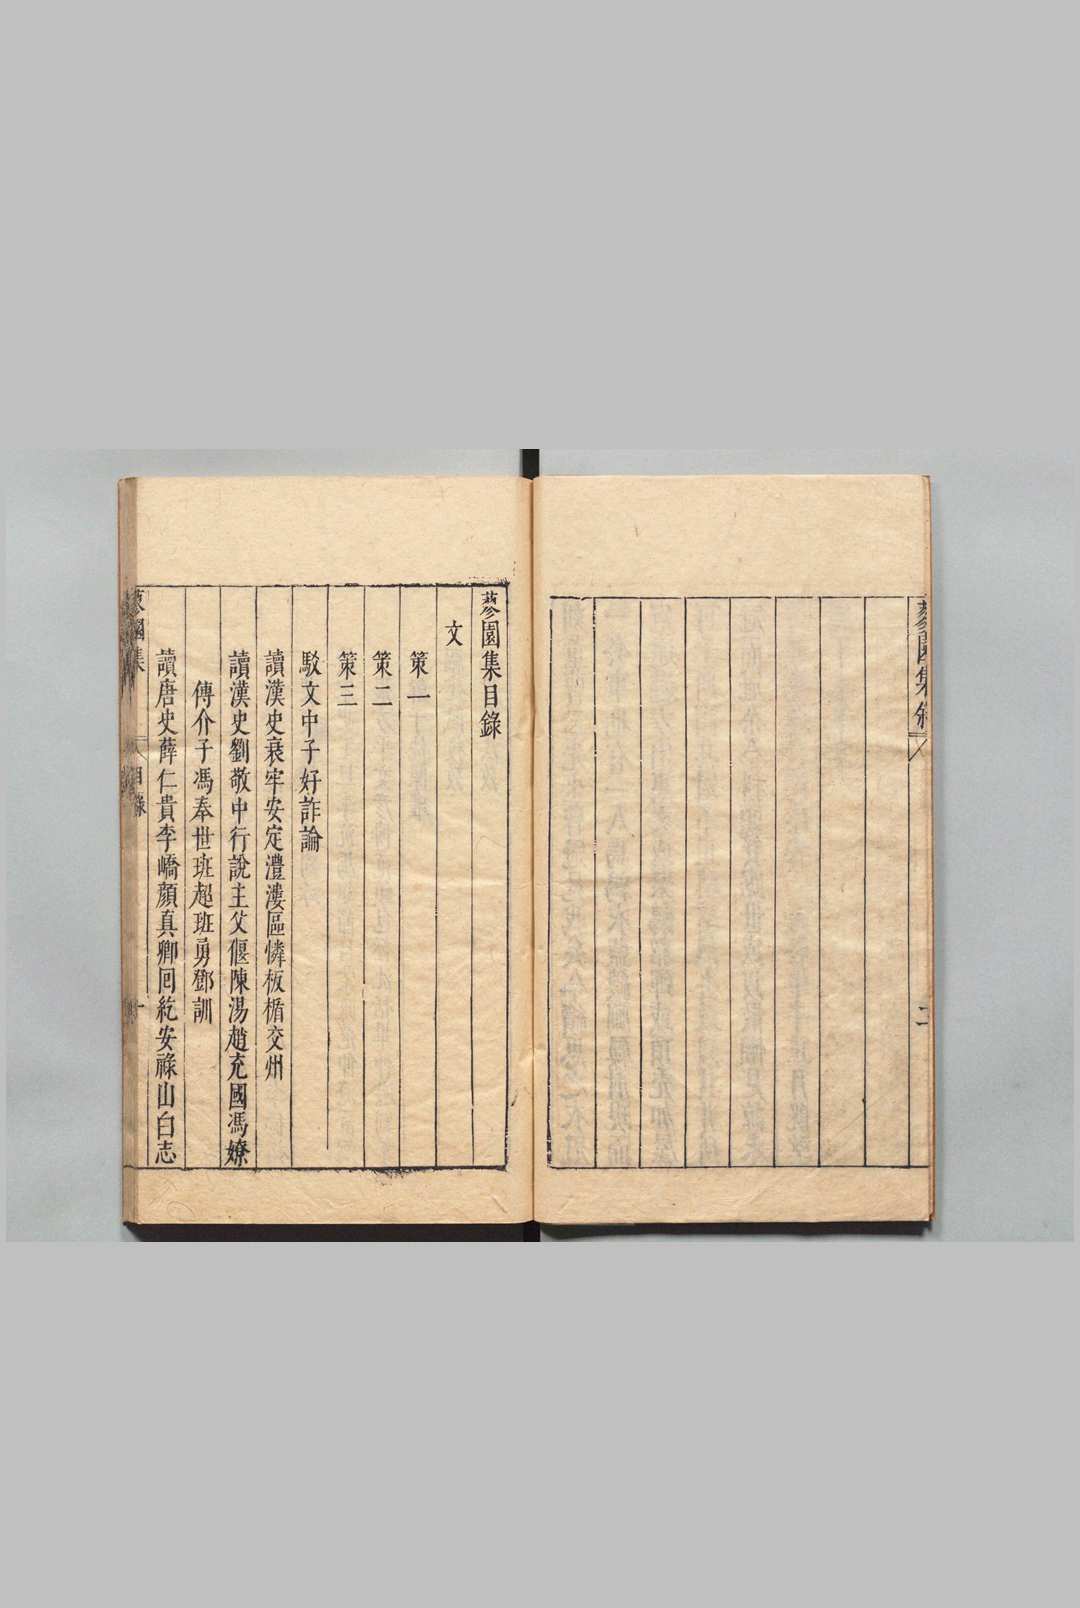 蓼園集敘
二
蓼園集目錄
文
策一
策二
策三
駁文中子好詐論
讀漢史哀牢安定澧漊區憐板楯交州
讀漢史劉敬中行說主父偃陳湯趙充國馮嫽
傅介子馮奉世班超班勇鄧訓
讀唐史薛仁貴李嶠顏真卿回紇安祿山白志
蓼園集
目錄
一